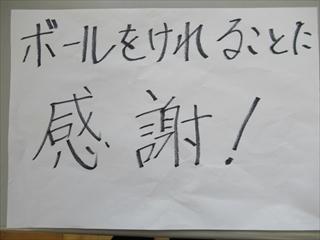 ボールをけれることに
感謝！